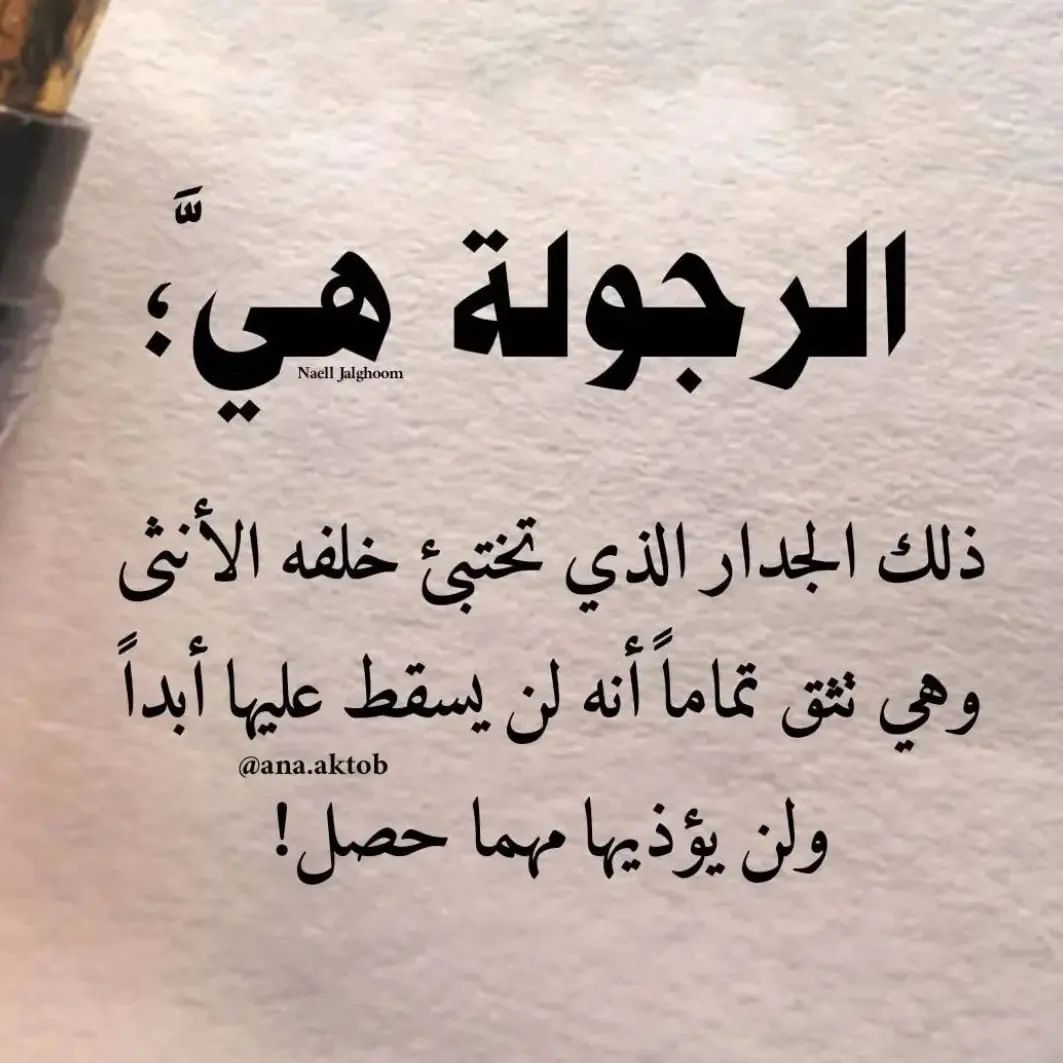 الرجولة هيَّ؛
Naell Jalghoom
ذلك الجدار الذي تختبئ خلفه الأنثى
وهي تثق تماماً أنه لن يسقط عليها أبداً
@ana.aktob
ولن يؤذيها مهما حصل!